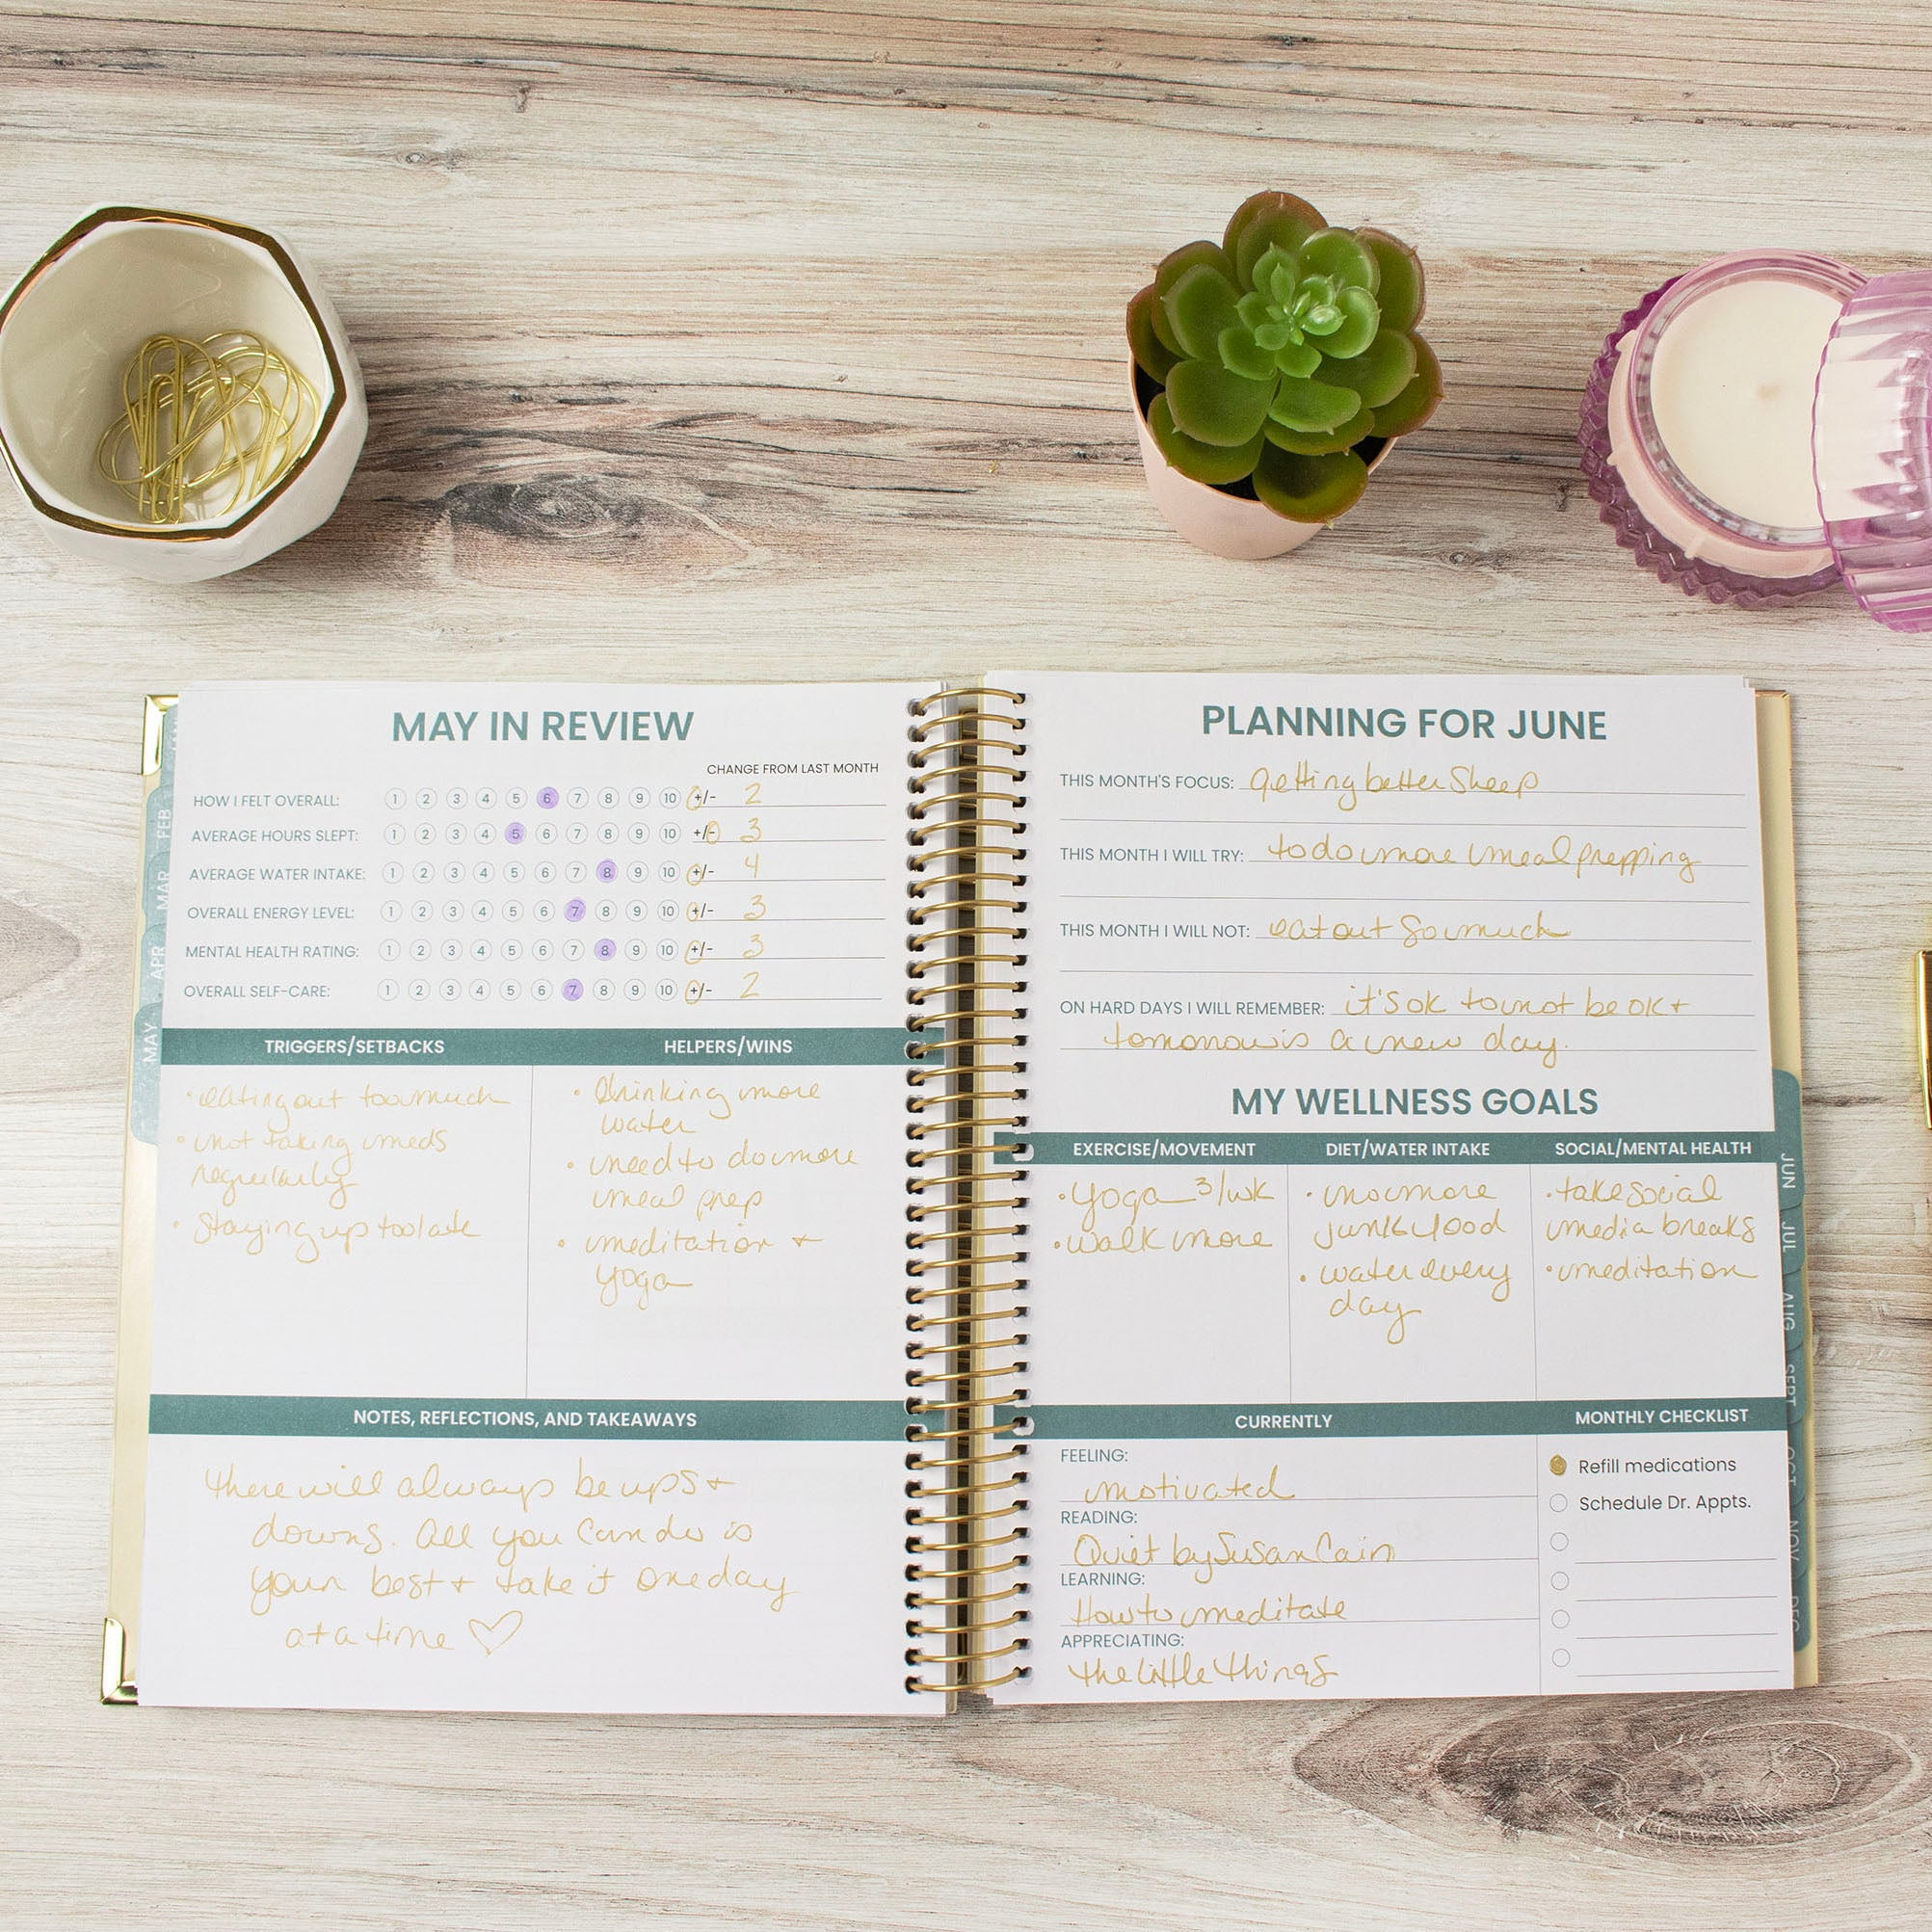 MAY IN REVIEW
CHANGE FROM LAST MONTH
HOW I FELT OVERALL: 1 2 3 4 5 6 7 8 9 10 +/- 2
AVERAGE HOURS SLEPT: 1 2 3 4 5 6 7 8 9 10 +/- 3
AVERAGE WATER INTAKE: 1 2 3 4 5 6 7 8 9 10 +/- 4
OVERALL ENERGY LEVEL: 1 2 3 4 5 6 7 8 9 10 +/- 3
MENTAL HEALTH RATING: 1 2 3 4 5 6 7 8 9 10 +/- 3
OVERALL SELF-CARE: 1 2 3 4 5 6 7 8 9 10 +/- 2
TRIGGERS/SETBACKS
• eating out too much
• not taking meds
regularly
• Staying up too late
HELPERS/WINS
• drinking more
water
• need to do more
meal prep
• meditation +
yoga
NOTES, REFLECTIONS, AND TAKEAWAYS
there will always be ups +
downs. All you can do is
your best + take it one day
at a time ♡
FEB
MAR
APR
MAY
PLANNING FOR JUNE
THIS MONTH'S FOCUS: getting better Sleep
THIS MONTH I WILL TRY: to do more meal prepping
THIS MONTH I WILL NOT: eat out so much
ON HARD DAYS I WILL REMEMBER: it's ok to not be ok +
tomorrow is a new day.
MY WELLNESS GOALS
EXERCISE/MOVEMENT
• yoga 3/wk
• walk more
DIET/WATER INTAKE
• no more
junk food
• water every
day
SOCIAL/MENTAL HEALTH
• take social
media breaks
• meditation
CURRENTLY
FEELING:
motivated
READING:
Quiet by Susan Cain
LEARNING:
How to meditate
APPRECIATING:
the little things
MONTHLY CHECKLIST
Refill medications
Schedule Dr. Appts.
JUN
JUL
AUG
SEPT
OCT
NOV
DEC